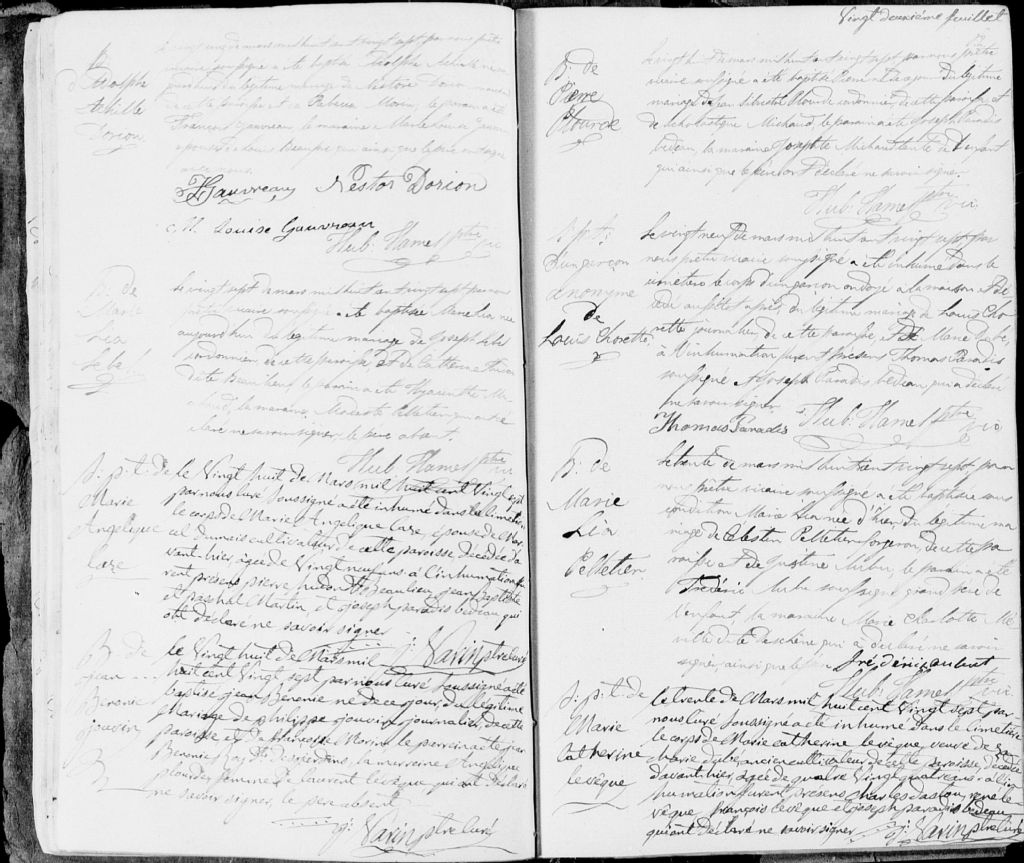 B.
Adolphe
Achille
Dorion
Le vingt
vicaire soussigné a été baptisé Adolphe Achille né ce
jour du légitime mariage de Nestor Dorion
de cette paroisse et de
François Gauvreau, la marraine a Marie Louise Gauvreau
épouse de Louis qui ainsi que le père ont signé
avec nous.
F. Gauvreau Nestor Dorion
M. Louise Gauvreau
Hub. Hamel ptre vic
B. de
Marie
Lia
Lebel
Le vingt sept de mars mil huit cent vingt sept par nous
prêtre vicaire soussigné a été baptisée Marie Lia née
aujourd'hui du légitime mariage de Joseph Lebel
cordonnier de cette paroisse et de Catherine
dite Beaulieu, le parrain a été Hyacinthe Mi-
chaud, la marraine, Modeste Pelletier qui ont dé-
claré ne savoir signer, le père absent.
Hub. Hamel ptre vic
S: p: t: de
Marie
Angelique
Caze
le Vingt huit de Mars mil huit cent Vingt sept
par nous Curé soussigné a été inhumé dans le Cimetière
le corps de Marie Angelique Caze, épouse de
Dumais cultivateur de cette paroisse, décédée da
vant hier, agée de Vingt neuf ans à l'inhumation fu
rent présens pierre hudon dit Beaulieu, jean baptiste
et paschal Martin, et joseph paradis bedeau qui
ont déclaré ne savoir signer
j: Varin ptre curé
B. de
jean
Benonie
jouvin
B
le Vingt huit de Mars mil
huit cent Vingt sept par nous Curé soussigné a été
baptisé jean Benonie né de ce jour du légitime
Mariage de philippe jouvin journalier de cette
paroisse et de françoise Morin le parrein a été jean
Benonie Roy dit Desjardins, la marreine Angelique
plourde femme de laurent levêque qui ont déclaré
ne savoir signer, le père absent
j: Varin ptre curé
Vingt deuxième feuillet
B. de
Pierre
Plourde
Le vingt huit de mars mil huit cent vingt sept par nous prêtre
vicaire soussigné a été baptisé Pierre né ce jour du légitime
mariage de Jean Silvestre Plourde cordonnier, de cette paroisse et
de Scholastique Michaud, le parrain a été Joseph Paradis
bedeau, la marraine Josephte Michaud tante de l'enfant
qui ainsi que le père ont déclaré ne savoir signer.
Hub. Hamel ptre vic
S. p. t:
d'un garçon
anonyme
de
Louis Chorette
Le vingt neuf de mars mil huit cent vingt sept par
nous prêtre vicaire soussigné a été inhumé dans le
cimetière le corps d'un garçon ondoyé à la maison et dé-
cédé aussitôt après, du légitime mariage de Louis Cho-
rette journalier, de cette paroisse, et de Marie Dubé,
à l'inhumation furent présens Thomas Paradis
soussigné et Joseph Paradis bedeau qui a déclaré
ne savoir signer
Thomas Paradis Hub. Hamel ptre vic
B. de
Marie
Lia
Pelletier
Le trente de mars mil huit cent vingt sept par
nous prêtre vicaire soussigné a été baptisée sous
condition Marie Lia née d'hier du légitime ma
riage de Célestin Pelletier forgeron, de cette pa
roisse et de Justine Aubu, le parrain a été
Frédéric Aubu soussigné grand père de
l'enfant, la marraine Marie Charlotte Mi
ville dite Deschene, qui a déclaré ne savoir
signer, ainsi que le père. frédéric aubut
Hub. Hamel ptre vic
S: p: t: de
Marie
Catherine
levêque
le trente de Mars mil huit cent Vingt sept par
nous Curé soussigné a été inhumé dans le Cimetière
le corps de Marie Catherine levêque, veuve de
ancien cultivateur de cette paroisse, décédée
davant hier, agée de quatre Vingt quatre ans. à l'in
humation furent présens charles dastou, rené le
vêque, françois levêque et joseph paradis bedeau
qui ont déclaré ne savoir signer j: Varin ptre curé